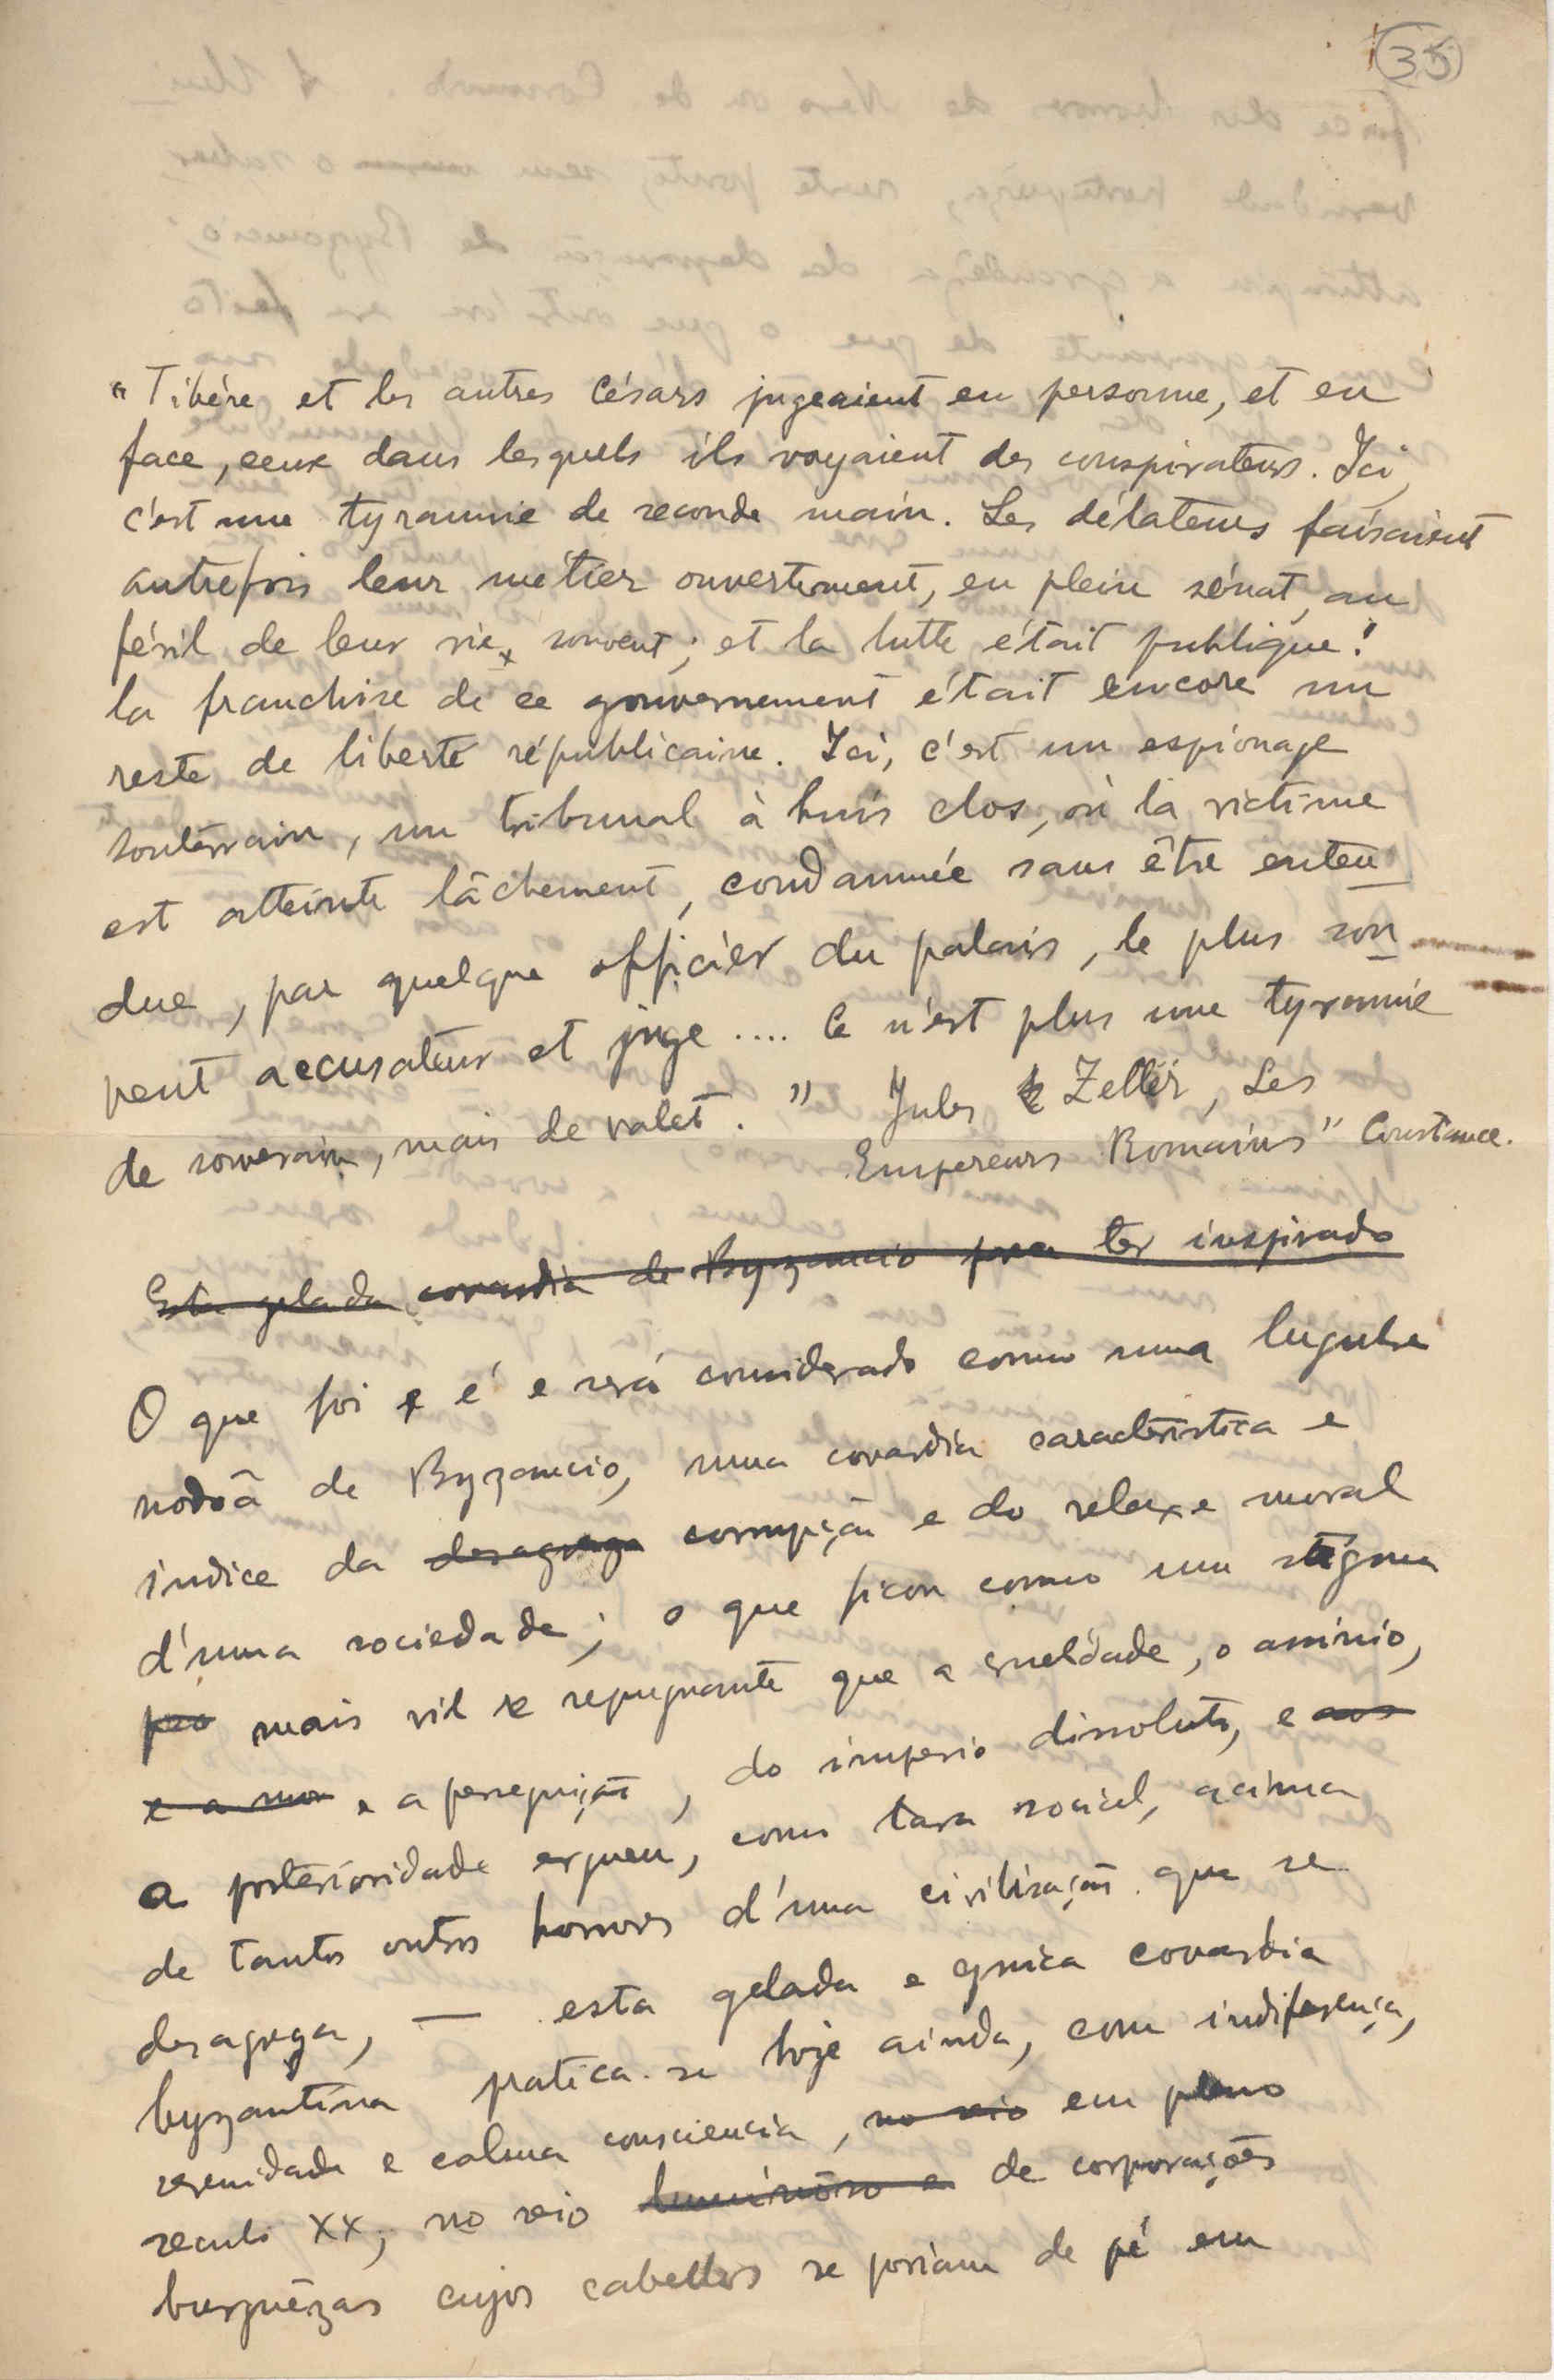 35
"Tibére et les autres Césars jugeaient en personne, et en
face, ceux dans lesquels ils voyaient des conspirateurs. Ici,
c'est une tyrannie de seconde main. Les délateurs faisaient
autrefois leur métier ouvertement, en plein sénat, au
péril de leur vie, souvent; et la lutte était publique!
la franchise de ce gouvernement était encore un
reste de liberté républicaine. Ici, c'est un espionage
souterrain, un tribunal à huis clos, où la victime
est atteinte lâchement, condamnée sans être enten
due, par quelque officier du palais, le plus sou
vent accusateur et juge .... Ce n'est plus une tyrannie
de souverain, mais de valet." Jules Zeller, Les
Empereurs Romains" Constance.
Esta gelada covardia de Byzancio para ter inspirado
O que foi e é e será considerado como uma lugubre
nodoã de Byzancio, uma covardia caracteristica e
indice da desagrega corrupção e do relaxe moral
d'uma sociedade; o que ficou como um stigma
mais vil e repugnante que a crueldade, o assinio,
e a mor e a perseguição, do imperio dissoluto, e aos
a posterioridade ergueu, como tara social, acima
de tantos outros horrores d'uma civilisação que se
desagrega, — esta gelada e cynica covardia
byzantina pratica-se hoje ainda, com indiferença,
serenidade e calma consciencia, no seio em pleno
seculo XX, no seio luminôso e de corporações
burguêzas cujos cabellos se poriam de pé em